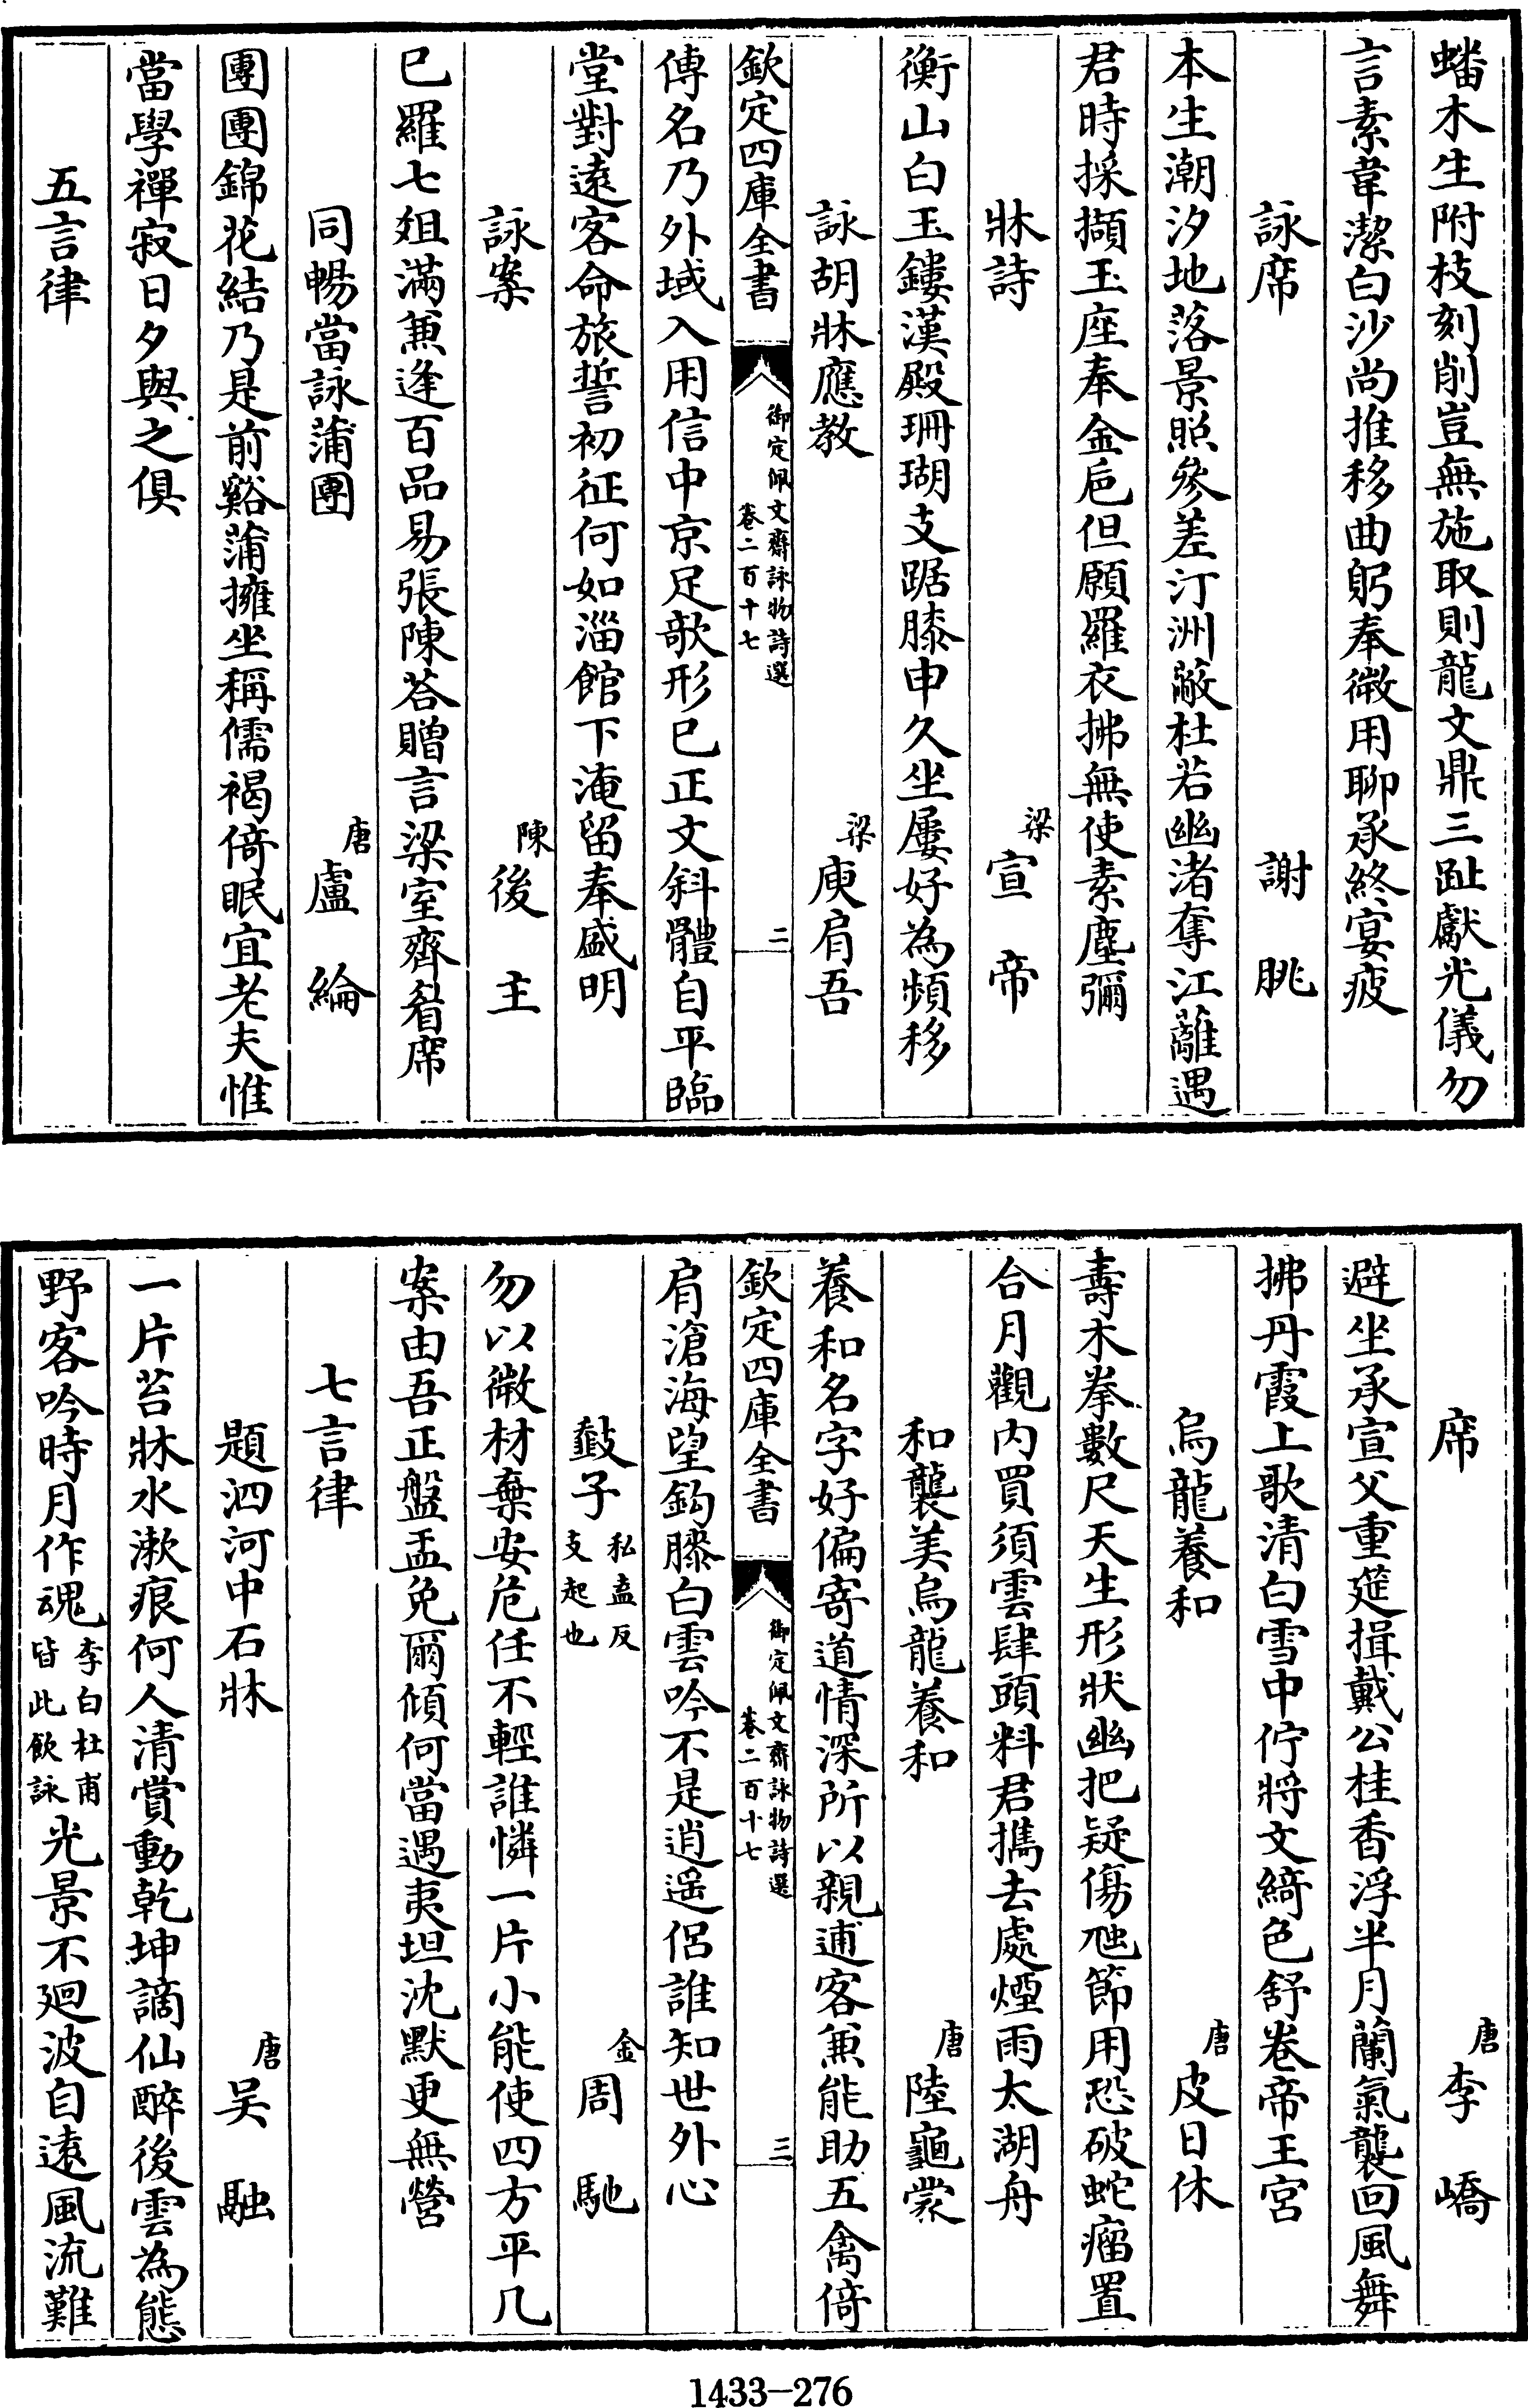 蟠木生附枝刻削豈無施取則龍文鼎三趾獻光儀勿
言素韋潔白沙尚推移曲躬奉微用聊承終宴疲
詠席　謝朓
本生潮汐地落景照參差汀洲蔽杜若幽渚奪江蘺遇
君時採擷玉座奉金巵但願羅衣拂無使素塵彌
牀詩　梁宣帝
衡山白玉鏤漢殿珊瑚支踞膝申久坐屢好為頻移
詠胡牀應教　梁庾肩吾
欽定四庫全書　御定佩文齋詠物詩選卷二百十七　二
傳名乃外域入用信中京足欹形已正文斜體自平臨
堂對遠客命旅誓初征何如淄館下淹留奉盛明
詠案　陳後主
已羅七俎滿兼逢百品易張陳荅贈言梁室齊眉席
同暢當詠蒲團　唐盧綸
團團錦花結乃是前谿蒲擁坐稱儒褐倚眠宜老夫惟
當學禪寂日夕與之俱
五言律
席　唐李嶠
避坐承宣父重筵揖戴公桂香浮半月蘭氣襲回風舞
拂丹霞上歌清白雪中佇將文綺色舒卷帝王宮
烏龍養和　唐皮日休
壽木拳數尺天生形狀幽把疑傷虺節用恐破蛇瘤置
合月觀內買須雲肆頭料君攜去處煙雨太湖舟
和襲美烏龍養和　唐陸龜蒙
養和名字好偏寄道情深所以親逋客兼能助五禽倚
欽定四庫全書　御定佩文齋詠物詩選卷二百十七　三
肩滄海望鈎膝白雲吟不是逍遥侶誰知世外心
㩻子私盍反支起也　金周馳
勿以微材棄安危任不輕誰憐一片小能使四方平几
案由吾正盤盂免爾傾何當遇夷坦沈默更無營
七言律
題泗河中石牀　唐吳融
一片苔牀水漱痕何人清賞動乾坤謫仙醉後雲為態
野客吟時月作魂李白杜甫皆此飲詠光景不廻波自遠風流難
1433-276